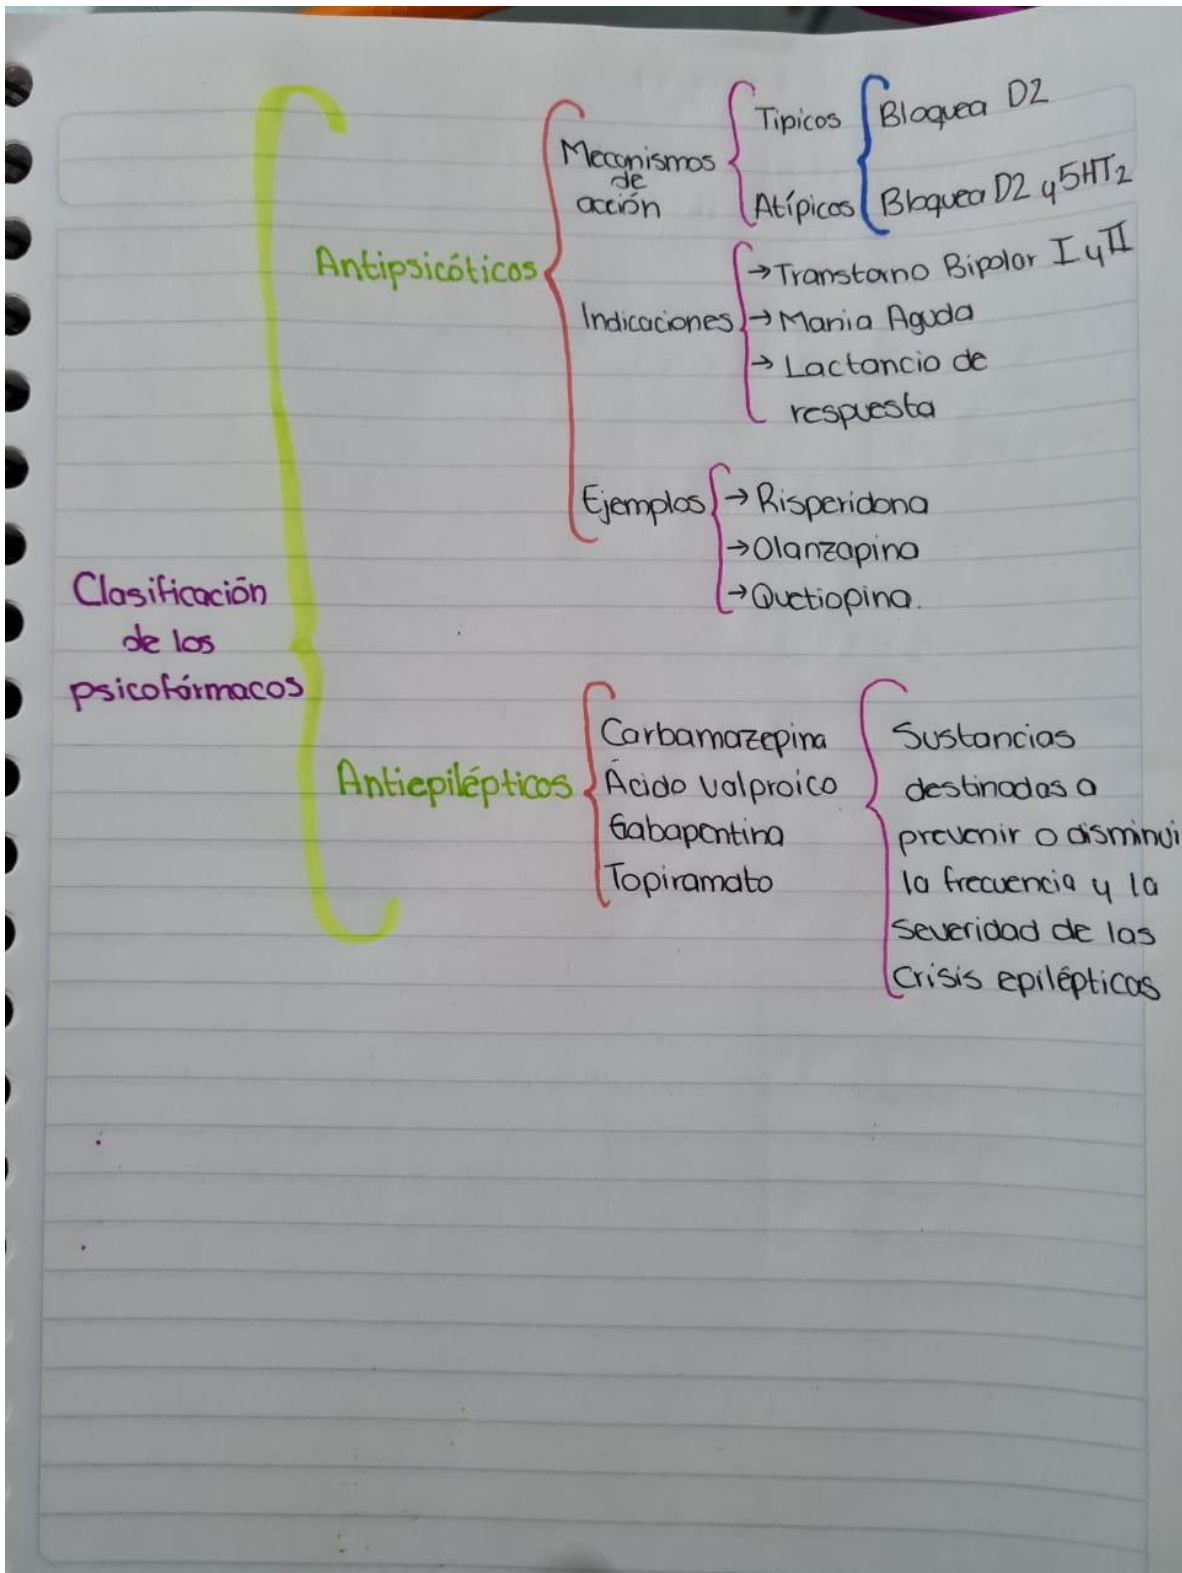 Clasificación
de los
psicofármacos
Antipsicóticos
Mecanismos
de
acción
Tipicos
Bloquea D2
Atípicos
Bloquea D2 y 5HT2
Indicaciones
→Transtorno Bipolar I y II
→ Mania Aguda
→ Lactancia de
respuesta
Ejemplos
→ Risperidona
→Olanzapina
→Quetiapina.
Antiepilépticos
Carbamazepina
Ácido valproico
Gabapentina
Topiramato
Sustancias
destinadas a
prevenir o disminui
la frecuencia y la
severidad de las
Crisis epilépticas